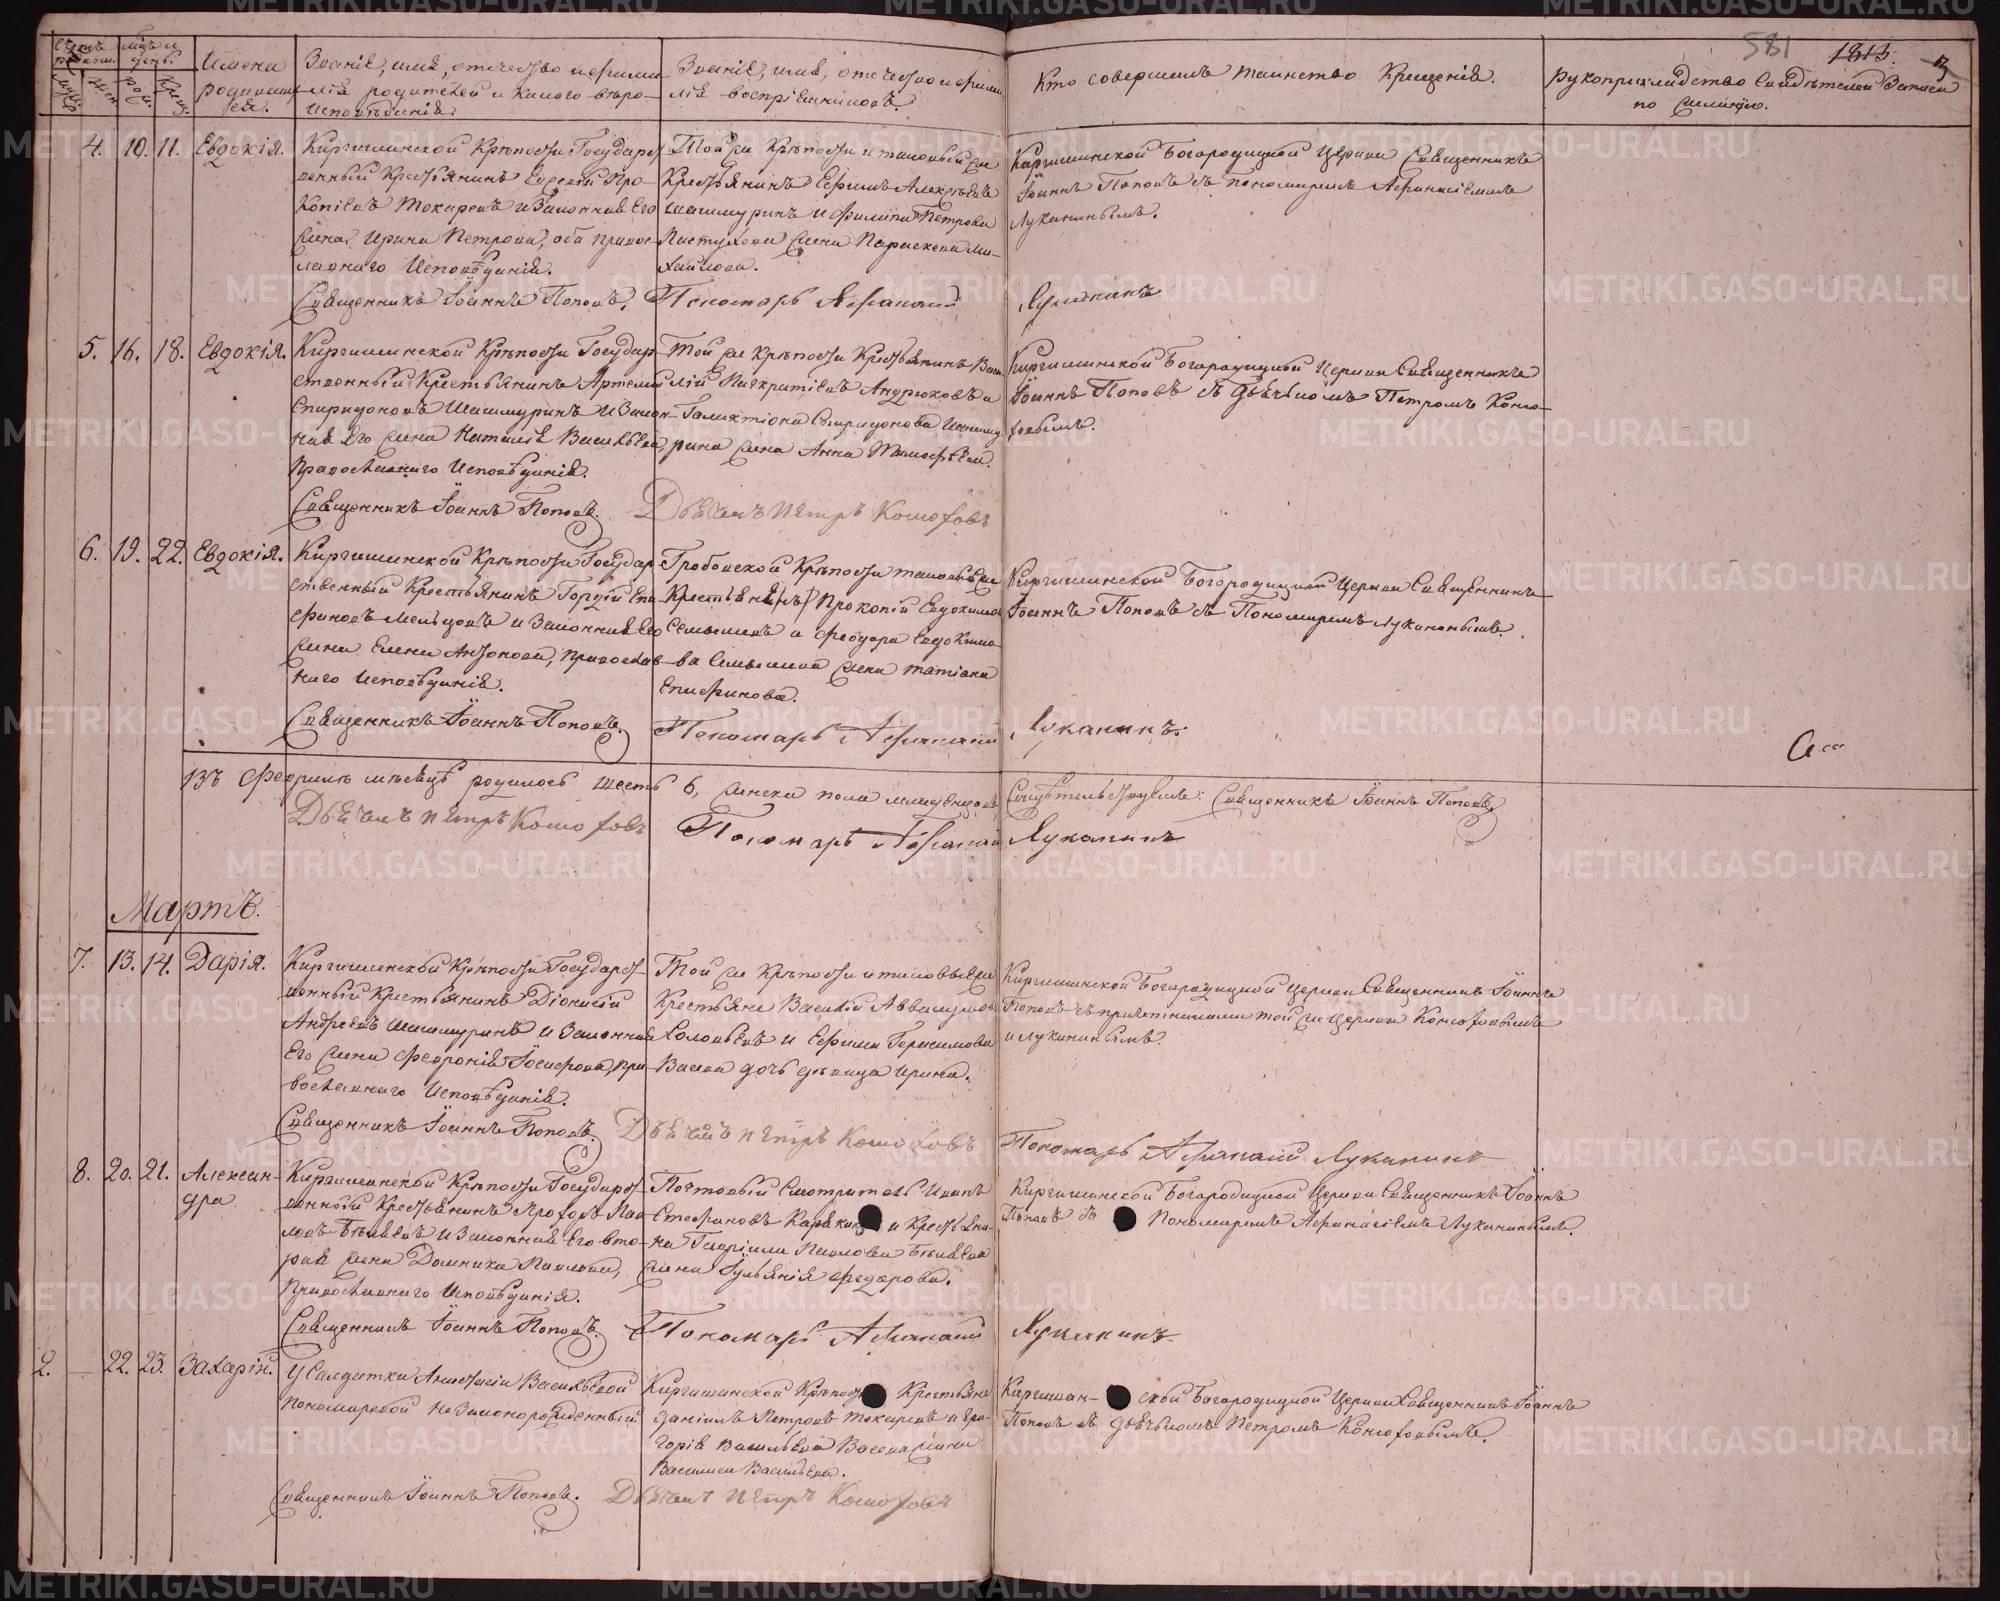 581
1813.
3
Счетъ родивш.
Мцъ и день.
Имена родившихся.
Званіе, имя, отчество и фамилія родителей и какого вѣроисповѣданія.
Званіе, имя, отчество и фамилія воспріемниковъ.
Кто совершалъ таинство Крещенія.
Рукоприкладство свидѣтелей записи по желанію.
4. 10. 11. Евдокія.
Киргишанской Крѣпости Государст-
венный Крестьянинъ Евсевій Про-
копіевъ Токаревъ и Законная Его
жена, Ирина Петрова, оба право-
славнаго Исповѣданія.
Священникъ Іоаннъ Поповъ.
Той же Крѣпости и таковый же
Крестьянинъ Ефимъ Алексѣевъ
Шашмуринъ и Филипа Петрова
Пастухова жена Параскева Ми-
хайлова.
Пономарь Афанасій Луканинъ
Киргишанской Богородицкой Церкви Священникъ
Іоаннъ Поповъ съ пономаремъ Афанасіемъ
Луканинымъ.
5. 16. 18. Евдокія.
Киргишанской Крѣпости Государ-
ственный Крестьянинъ Артемій
Спиридоновъ Шашмуринъ и Закон-
ная Его жена Наталія Васильева,
Православнаго Исповѣданія.
Священникъ Іоаннъ Поповъ.
Той же Крѣпости Крестьянинъ Васи-
лій Панкратіевъ Андрюковъ и
Галактіона Спиридонова Шашму-
рина жена Анна Тимофѣева.
Дьячекъ Петръ
Киргишанской Богородицкой Церкви Священникъ
Іоаннъ Поповъ съ Дьячкомъ Петромъ
6. 19. 22. Евдокія.
Киргишанской Крѣпости Государ-
ственный Крестьянинъ Гордій Епи-
фановъ Мельцовъ и Законная Его
жена Елена Антонова, Православ-
наго Исповѣданія.
Священникъ Іоаннъ Поповъ.
Гробовской Крѣпости таковый же
Крестьянинъ Прокопій Евдокимовъ
и Феодора Евдокимо-
ва жена Татіана
Епифанова.
Пономарь Афанасій Луканинъ.
Киргишанской Богородицкой Церкви Священникъ
Іоаннъ Поповъ съ Пономаремъ Луканинымъ.
Въ Февралѣ мѣсяцѣ родилось шесть 6, женска пола младенцовъ
Священникъ Іоаннъ Поповъ.
Дьячекъ Петръ
Пономарь Афанасій Луканинъ
Мартъ.
7. 13. 14. Дарія.
Киргишанской Крѣпости Государст-
венный Крестьянинъ Діонисій
Андреевъ Шашмуринъ и Законная
Его жена Февронія Іосифова, Пра-
вославнаго Исповѣданія.
Священникъ Іоаннъ Поповъ.
Той же Крѣпости и таковые же
Крестьяне Василій Аввакумовъ
Соловьевъ и Ефима Герасимова
Васева дочь дѣвица Ирина.
Дьячекъ Петръ
Пономарь Афанасій Луканинъ
Киргишанской Богородицкой Церкви Священникъ Іоаннъ
Поповъ съ причетниками той же Церкви
и Луканинымъ.
8. 20. 21. Алексан-
дра
Киргишанской Крѣпости Государст-
венный Крестьянинъ Прохоръ Пав-
ловъ Бѣляевъ и Законная Его вто-
рая жена Домника Павлова,
Православнаго Исповѣданія.
Священникъ Іоаннъ Поповъ.
Почтовый Смотритель Иванъ
Стефановъ и Крестьяни-
на Гавріила Павлова Бѣляева
жена Іуліянія Федорова.
Пономарь Афанасій Луканинъ.
Киргишанской Богородицкой Церкви Священникъ Іоаннъ
Поповъ съ Пономаремъ Афанасіемъ Луканинымъ.
2. 22. 23. Захарій.
У Салдатки Анастасіи Васильевой
Пономаревой Незаконорожденный
Священникъ Іоаннъ Поповъ.
Киргишанской Крѣпости Крестьяне
Даніилъ Петровъ Токаревъ и Гри-
горія Васильева Васева жена
Василиса Васильева.
Дьячекъ Петръ
Киргишан-ской Богородицкой Церкви Священникъ Іоаннъ
Поповъ съ дьячкомъ Петромъ
METRIKI.GASO-URAL.RU